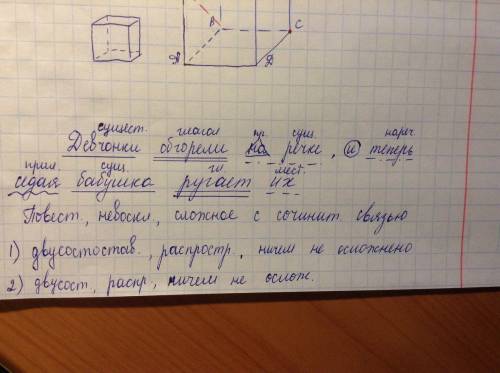 В С
А Д
сущест. глагол пр. сущ. нареч.
Девчонки обгорели на речке, и теперь
прил. сущ. гл мест.
седая бабушка ругает их
Повест., невоскл., сложное с сочинит связью
1) двусостостав., распростр., ничем не осложнено
2) двусост., распр., ничем не ослож.